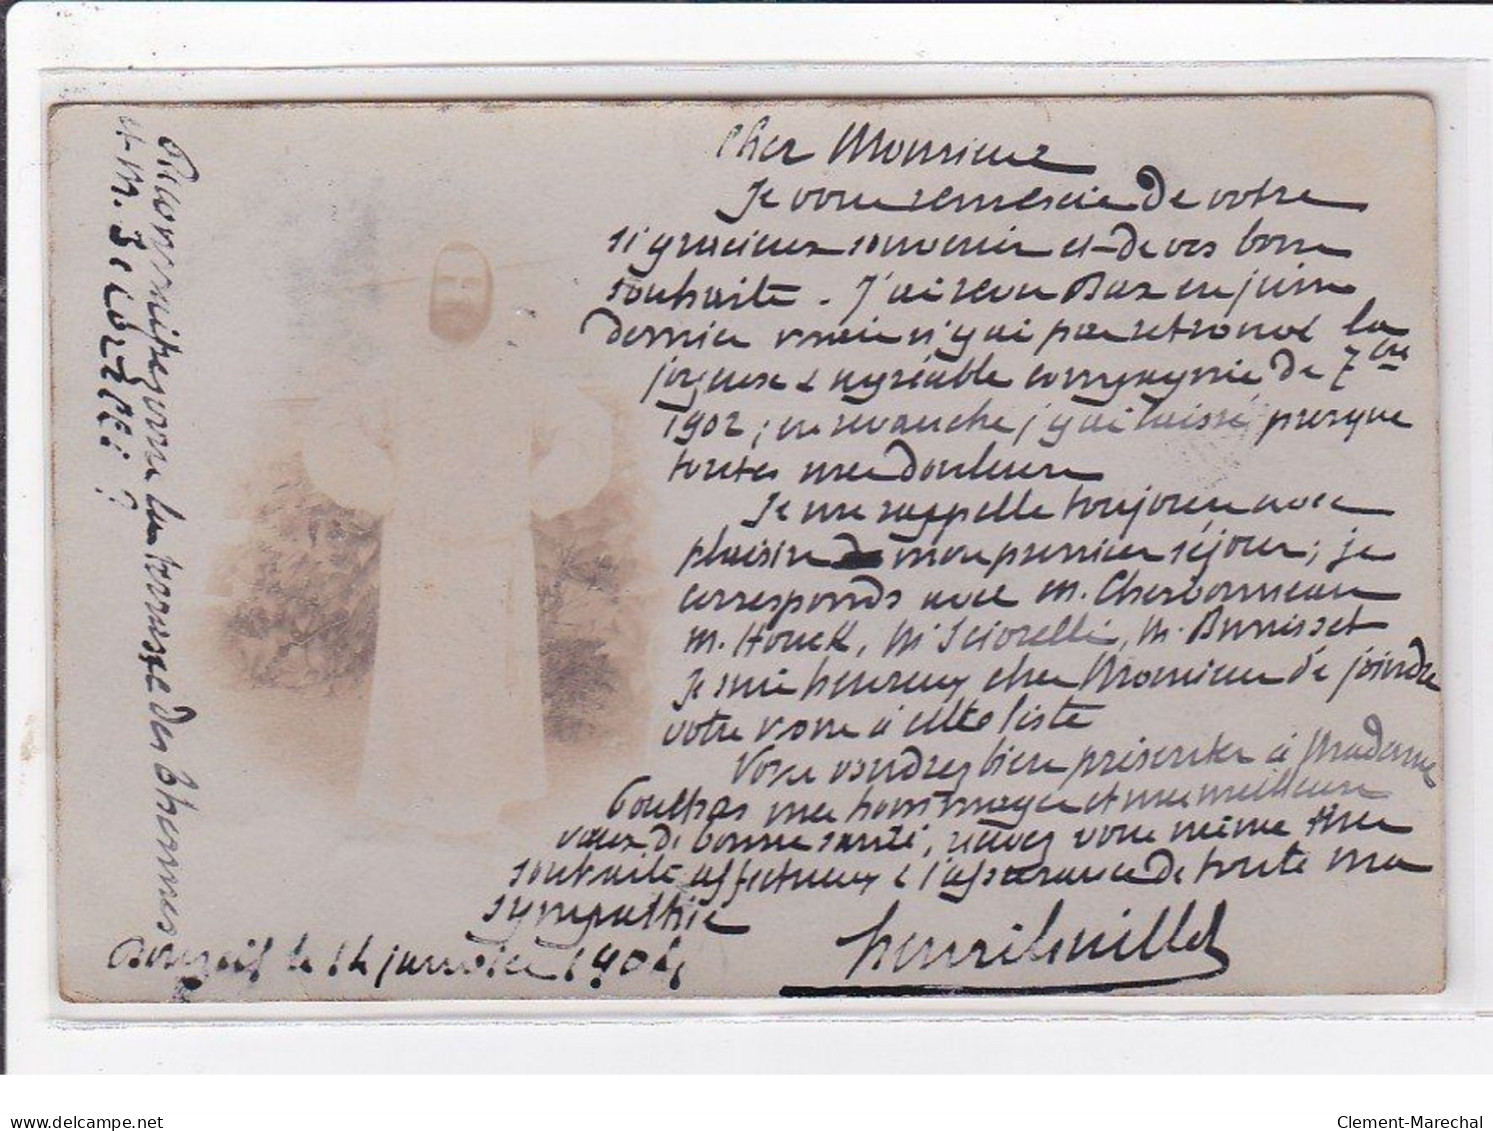 Cher Monsieur
Je vous remercie de votre
si gracieux souvenir et de vos bons
souhaits. J'ai revu Dax en juin
dernier mais n'y ai pas retrouvé la
joyeuse & agréable compagnie de 7bre
1902; en revanche j'y ai laissé presque
toutes mes douleurs
Je me rappelle toujours avec
plaisir de mon premier séjour; je
corresponds avec M. Charbonneau
M. Houck, M Sciorelli, M. Brunisset
Je suis heureux cher Monsieur de joindre
votre nom à cette liste
Vous voudrez bien présenter à Madame
mes hommages et mes meilleurs
vœux de bonne santé, recevez vous même mes
souhaits affectueux & l'assurance de toute ma
sympathie
le 14 janvier 1904
henri
Reconnaîtrez vous la terrasse des Thermes
et M.
delcampe.net
Clement-Marechal